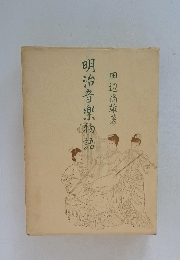 明治音樂物語
田辺尚雄著